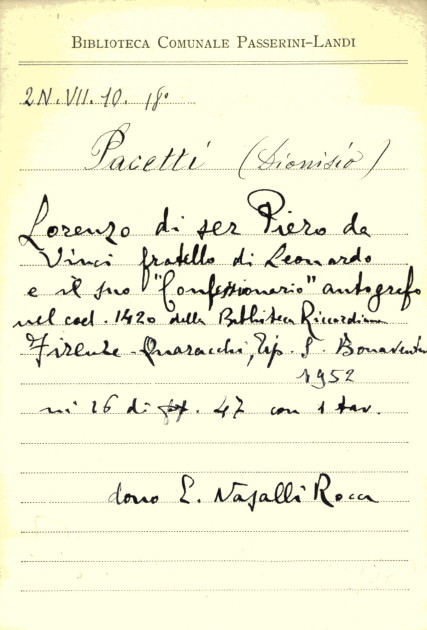 BIBLIOTECA COMUNALE PASSERINI-LANDI
2N.VII.10. 18°
Pacetti (Dionisio)
Lorenzo di ser Piero da
Vinci fratello di Leonardo
e il suo "Confessionario" autografo
nel cod. 1420 della Biblioteca Riccardiana
Firenze-Quaracchi, Tip. S. Bonaventura
1952
in 16 di pp. 47 con 1 tav.
dono E. Nasalli Rocca